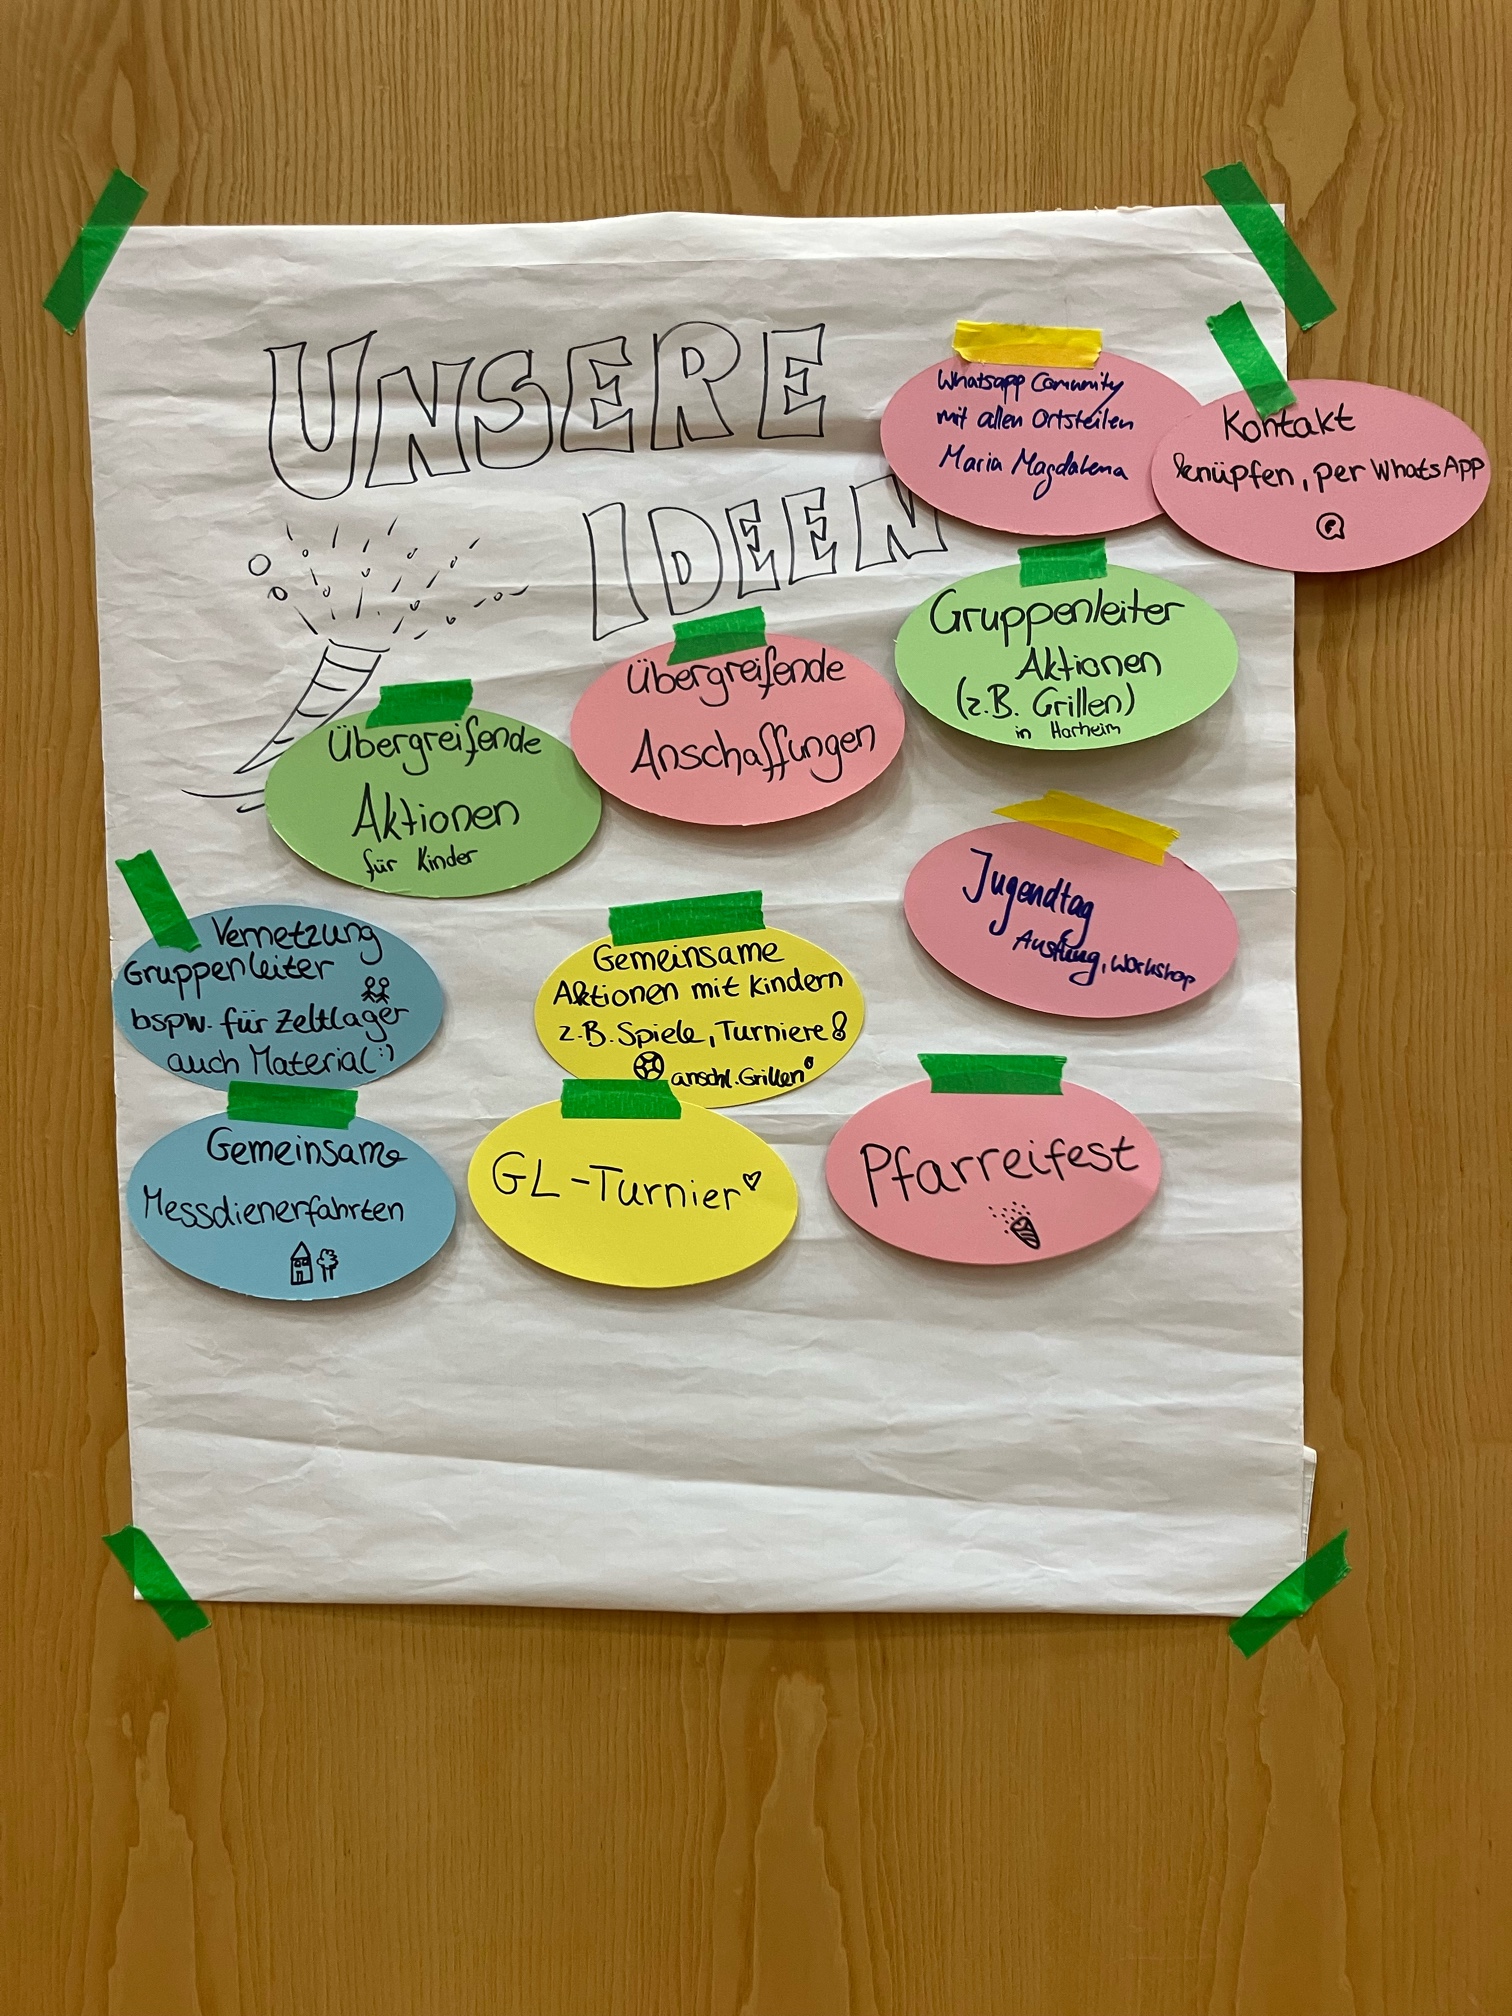 UNSERE
IDEEN
Whatsapp Community
mit allen Ortsteilen
Maria Magdalena
Kontakt
knüpfen, per WhatsApp
Gruppenleiter
Aktionen
(z.B. Grillen)
in Horheim
Übergreifende
Anschaffungen
Übergreifende
Aktionen
für Kinder
Jugendtag
Ausflug, Workshop
Vernetzung
Gruppenleiter
bspw. für Zeltlager
auch Material :)
Gemeinsame
Aktionen mit Kindern
z.B. Spiele, Turniere!
anschl. Grillen
Gemeinsame
Messdienerfahrten
GL-Turnier
Pfarreifest